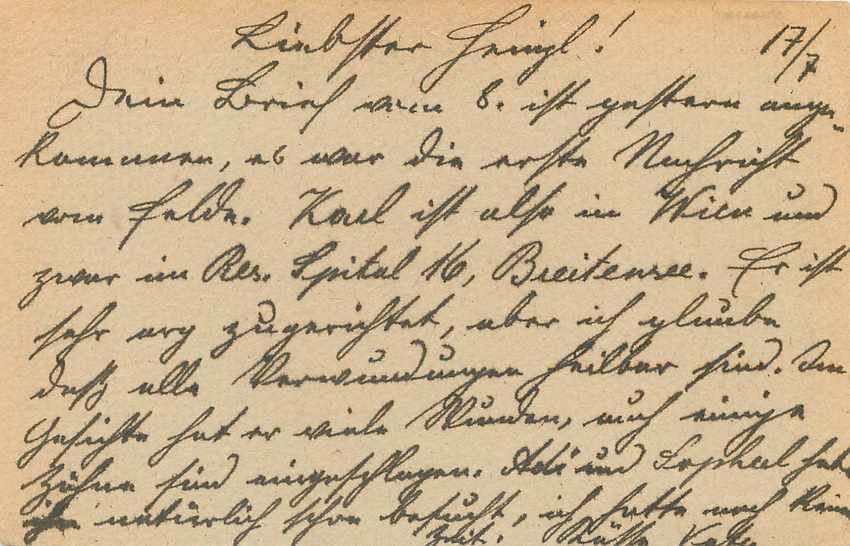 Liebster Heinzl! 17/7
Dein Brief vom 8. ist gestern ange-
kommen, es war die erste Nachricht
vom Felde. Karl ist also in Wien und
zwar im Res. Spital 16, Breitensee. Er ist
sehr arg zugerichtet, aber ich glaube
daß alle Verwundungen heilbar sind. Im
Gesichte hat er viele Wunden, auch einige
Zähne sind eingeschlagen. Adi und hab
ihn natürlich schon besucht, ich hatte noch keine
Zeit. Küsse Vater